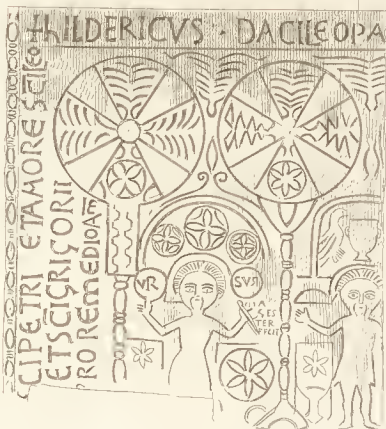 hILDERICVS · DACILEOPA
CIPETRI ETAMORE SCILEO
ETSCIGRIGORII
PROREMEDIO
VR SVS
GES
TER
FECIT